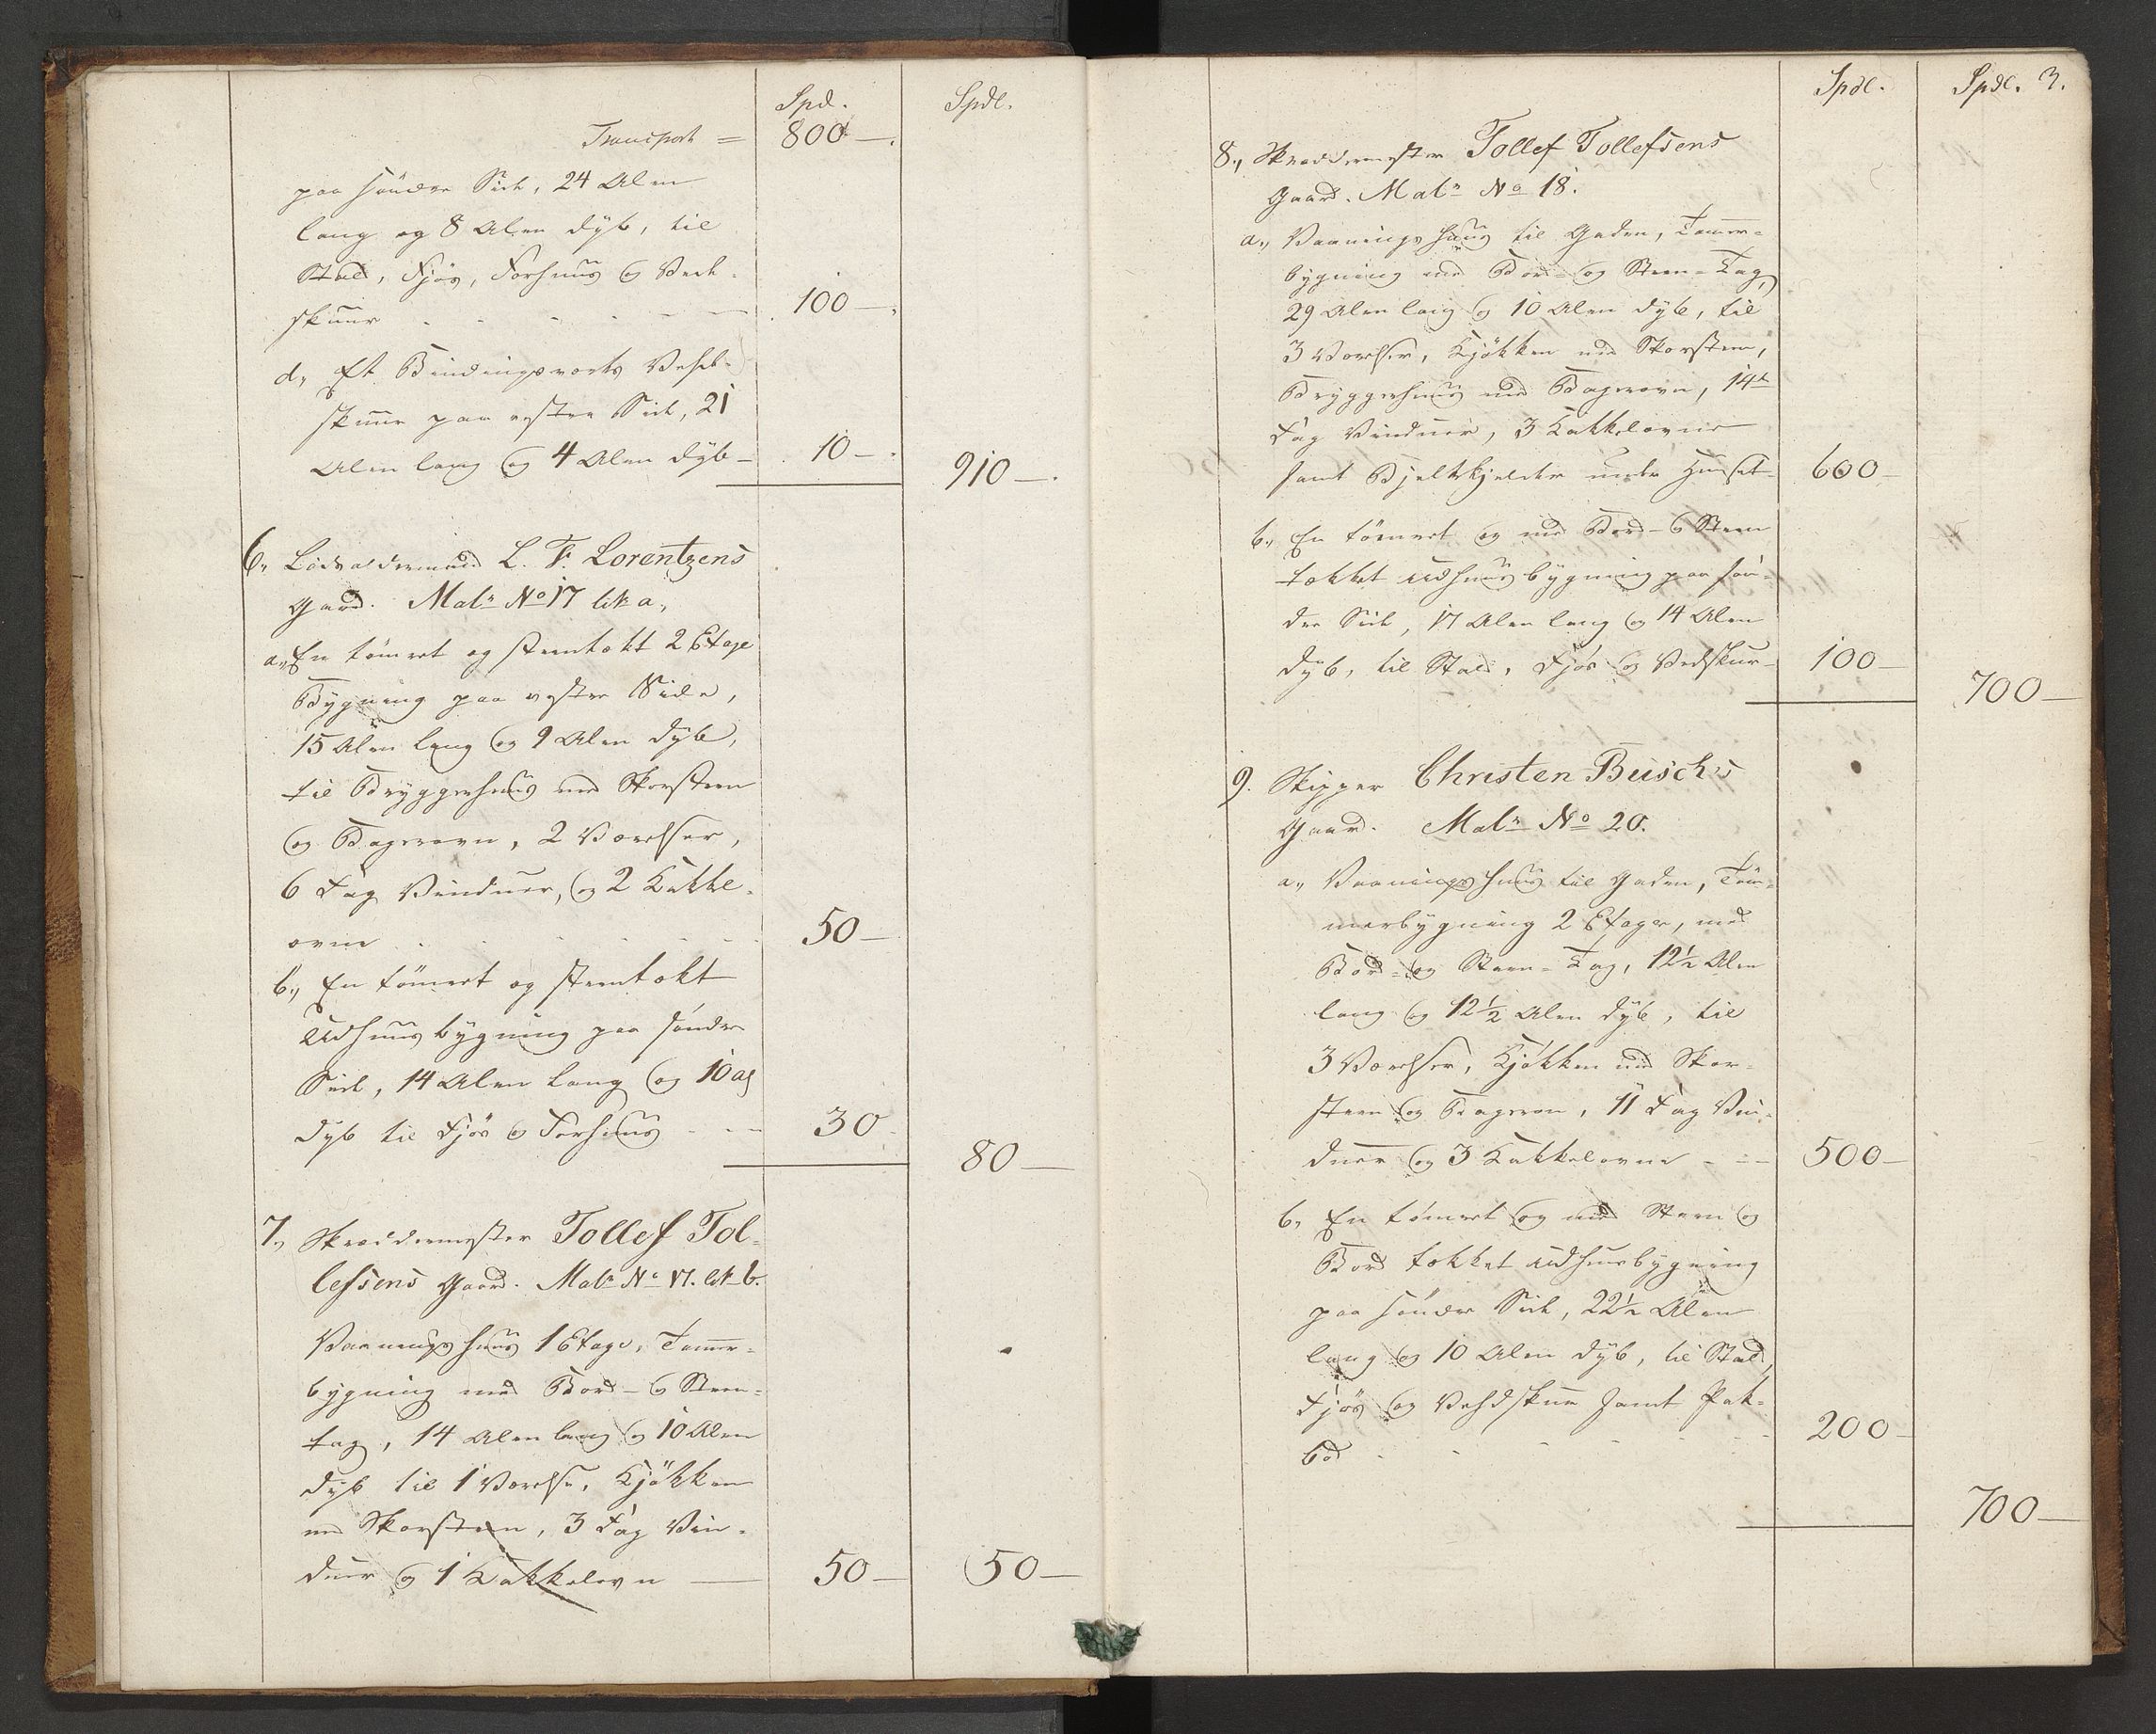 Spd. Spdl.
Transport = 800 -.
paa søndre Side, 24 Alen
lang og 8 Alen dyb, til
Stald, Fjøs, Forhuus og Ved-
skuur 100 -.
d., Et Bindingsværks Vehd-
skuur paa østre Side, 21
Alen lang og 4 Alen dyb - 10 -.
910 -.
6., L. F. Lorentzens
Gaard. Matr. No 17 litr a.
a., En tømret og steentækt 2 Etage
Bygning paa østre Side,
15 Alen lang og 9 Alen dyb,
til Bryggerhuus med Skorsteen
og Bagerovn, 2 Værelser,
6 Fag Vinduer, og 2 Kakkel-
ovne 50 -
b., En tømret og steentækt
Udhuusbygning paa søndre
Side, 14 Alen lang og 10 Al
dyb til Fjøs og Forhuus - - - 30 -
80 -
7., Skræddermester Tollef Tol-
lefsens Gaard. Matr. No 17. litr b.
Vaaningshuus 1 Etage, Tømmer-
bygning med Bord- og Steen-
tag, 14 Alen lang og 10 Alen
dyb til 1 Værelse, Kjøkken
med Skorsteen, 3 Fag Vin-
duer og 1 Kakkelovn - 50 - 50 -
Spdl. Spdl. 3.
8., Skræddermester Tollef Tollefsens
Gaard. Matr. No 18.
a., Vaaningshuus til Gaden, Tømmer-
bygning med Bord- og Steen-Tag,
29 Alen lang og 10 Alen dyb, til
3 Værelser, Kjøkken med Skorsteen,
Bryggerhuus med Bagerovn, 14
Fag Vinduer, 3 Kakkelovne
samt Bjelkekjelder under Huuset - 600 -
b., En tømret og med Bord- og Steen
tækket Udhuusbygning paa søn-
dre Side, 17 Alen lang og 14 Alen
dyb, til Stald, Fjøs og Vedskuur - 100 -
700 -
9. Skipper Christen Buschs
Gaard. Matr. No 20.
a., Vaaningshuus til Gaden, Tøm-
merbygning 2 Etager, med
Bord- og Steen-Tag, 12½ Alen
lang og 12½ Alen dyb, til
3 Værelser, Kjøkken med Skor-
steen og Bagerovn, 11 Fag Vin-
duer og 3 Kakkelovne - - - 500 -
b., En tømret og med Steen og
Bord tækket Udhuusbygning
paa søndre Side, 22½ Alen
lang og 10 Alen dyb, til Stald,
Fjøs og Vehdskuur samt Pak-
bod 200 -
700 -